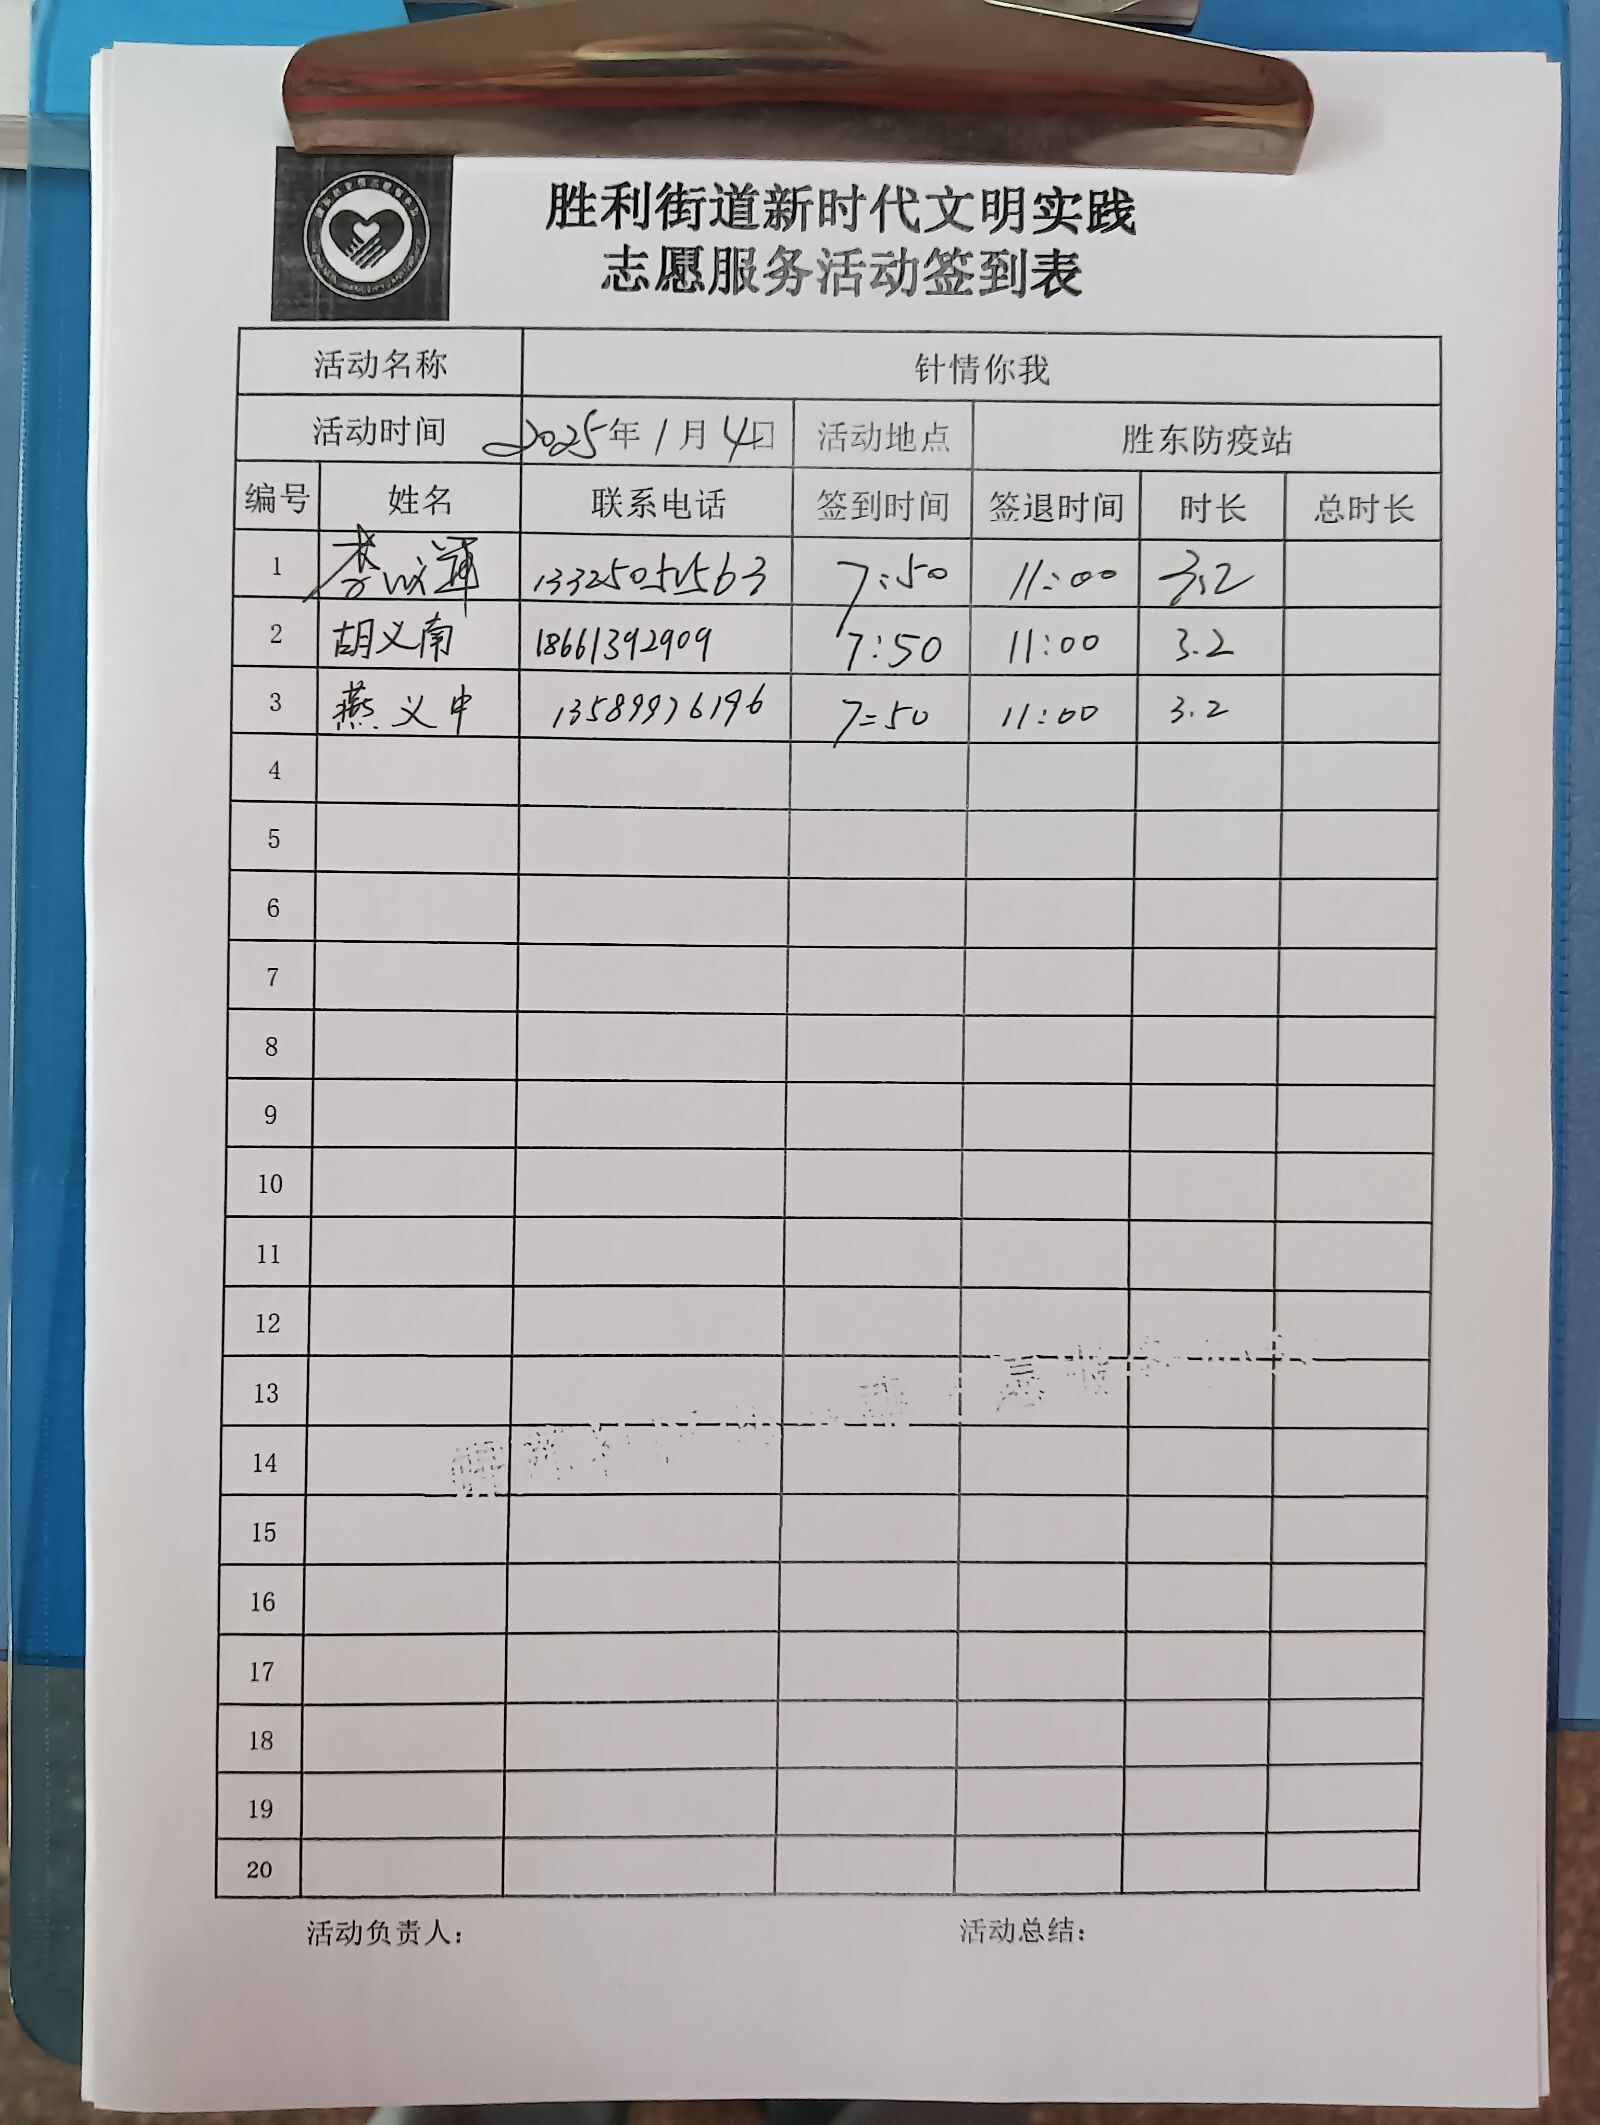 胜利街道新时代文明实践
志愿服务活动签到表
活动名称 针情你我
活动时间 2025年1月4日 活动地点 胜东防疫站
编号 姓名 联系电话 签到时间 签退时间 时长 总时长
1 李 13325051563 7:50 11:00 3.2
2 胡义南 18661392909 7:50 11:00 3.2
3 燕义中 13589976196 7:50 11:00 3.2
4
5
6
7
8
9
10
11
12
13
14
15
16
17
18
19
20
活动负责人: 活动总结: